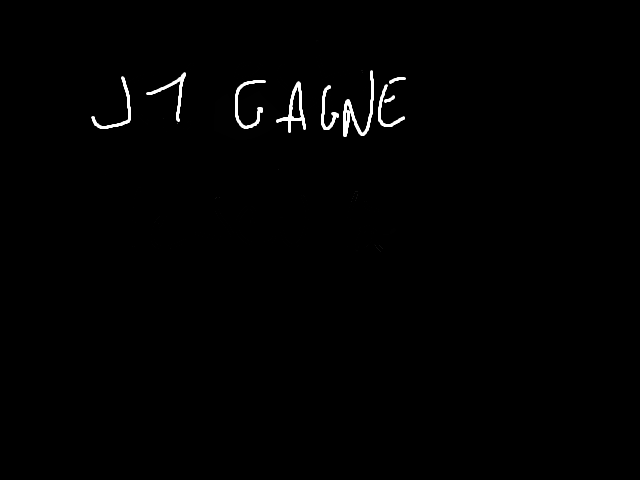 J1 GAGNE